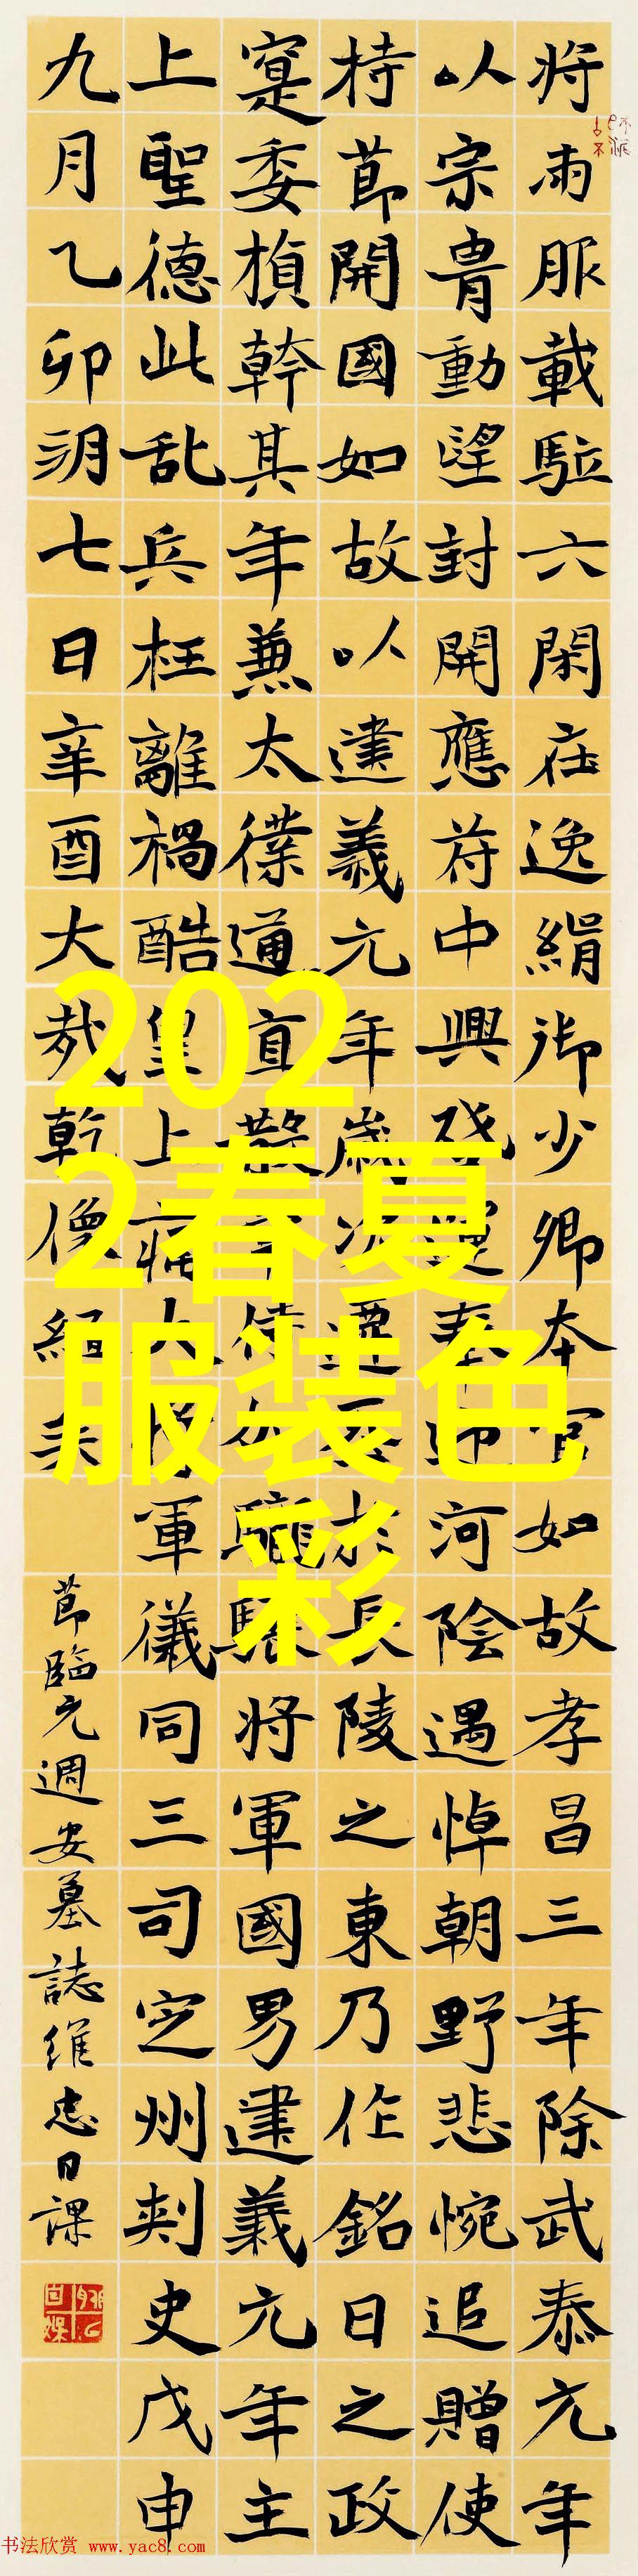 将雨服載駈六閑在逸絹御少卿本官如故孝昌三年除武泰元年
以宗胄動望封開應符中興發運奉迎河陰遇悼朝野悲惋追贈使
持節開國如故以建義元年歲次遷于於長陵之東乃作銘曰之政
寔委楨幹其年兼太僕通直散常侍仍驤驤将軍國男建義元年主
上聖德此乱兵枉離禍酷皇上痛大将軍儀同三司定州刾史戊申
九月乙卯朔七日辛酉大哉乾像絪矣
節臨元週安墓誌維忠日課
202
2春夏
服装色
彩
书法欣赏 www.yac8.com